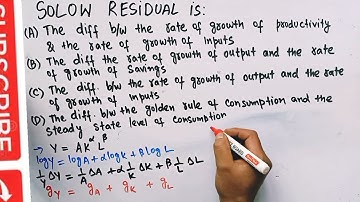 SOLOW RESIDUAL is:
(A) The diff b/w the rate of growth of productivity
& the rate of growth of Inputs
(B) The diff the rate of growth of output and the rate
of growth of Savings
(C) The diff. b/w the rate of growth of output and the rate
of growth of inputs
(D) The diff b/w the golden rule of consumption and the
steady state level of consumption
→ Y = AK^α L^β
log Y = log A + α log K + β log L
1/Y ΔY = 1/A ΔA + α 1/K ΔK + β 1/L ΔL
g_Y = g_A + g_K + g_L
SUBSCRIBE